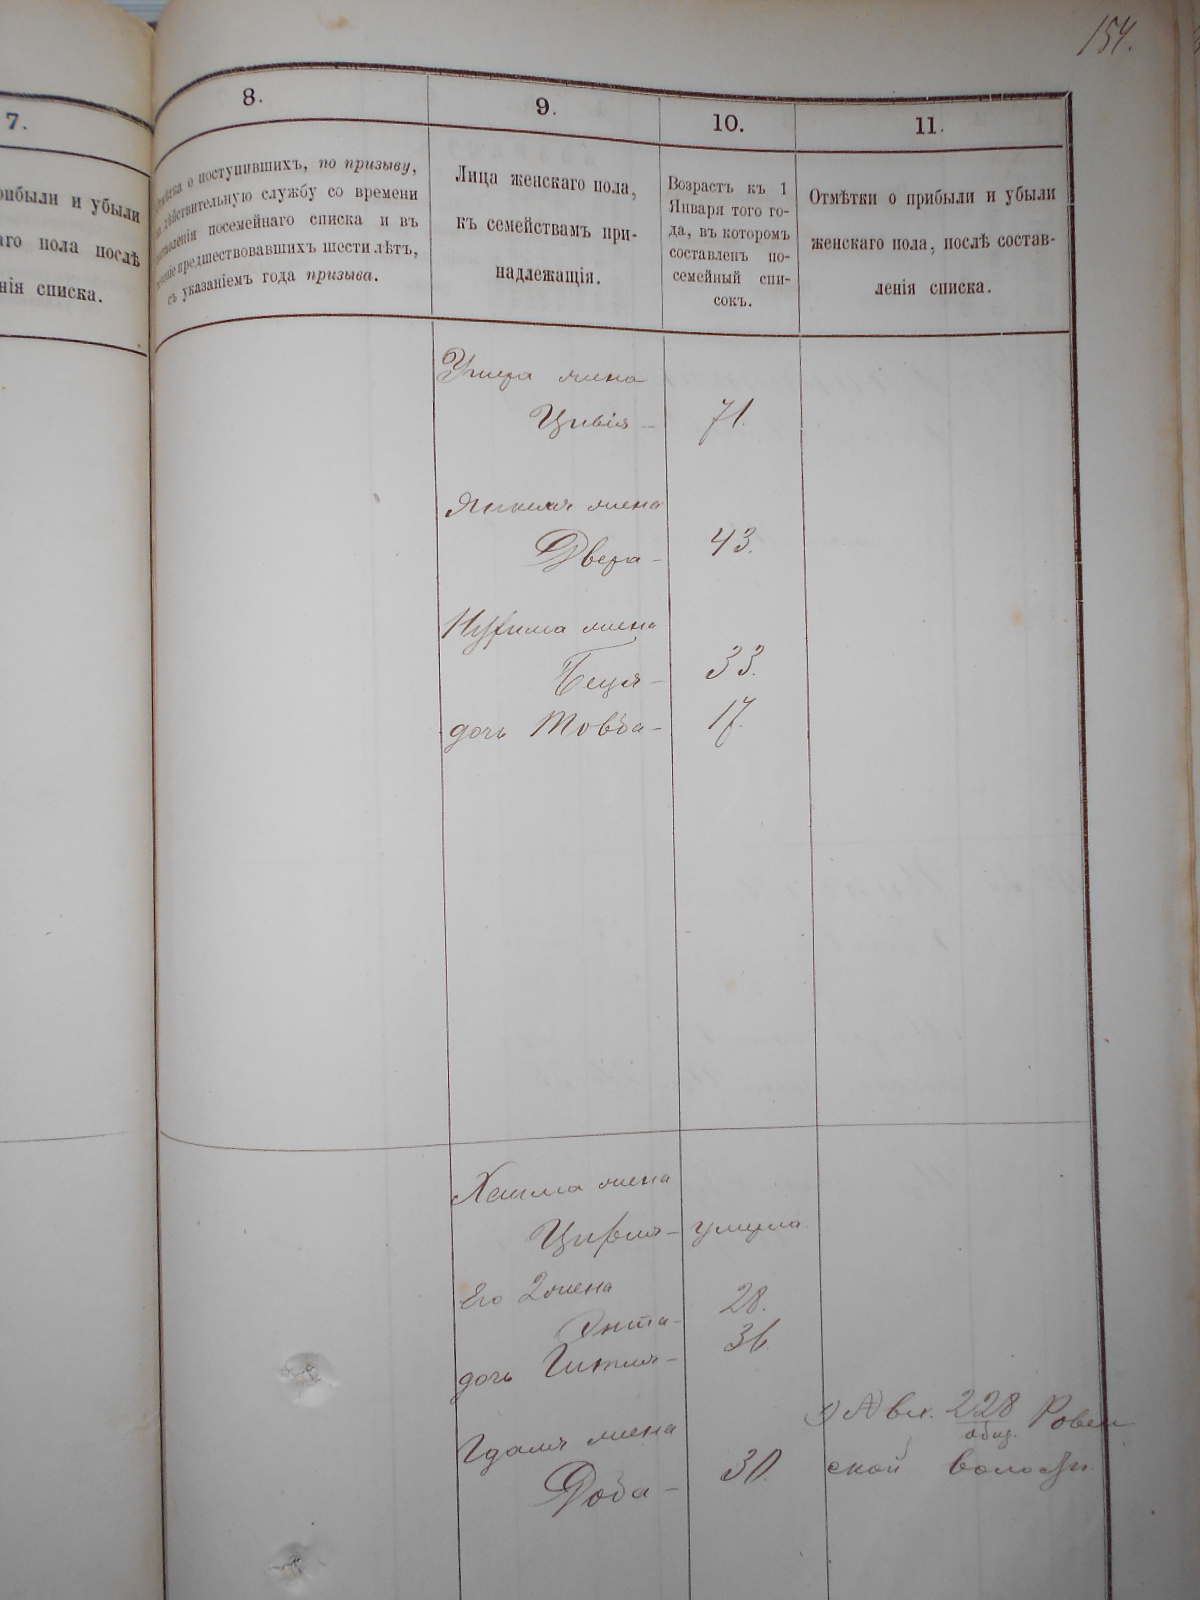 154.
7.
8.
9.
10.
11.
рибыли и убыли
аго пола послѣ
нія списка.
Отмѣтка о поступившихъ, по призыву,
на дѣйствительную службу со времени
составленія посемейнаго списка и въ
теченіе предшествовавшихъ шести лѣтъ,
съ указаніемъ года призыва.
Лица женскаго пола,
къ семействамъ при-
надлежащія.
Возрастъ къ 1
Января того го-
да, въ которомъ
составленъ по-
семейный спи-
сокъ.
Отмѣтки о прибыли и убыли
женскаго пола, послѣ состав-
ленія списка.
жена
Цивія – 71.
жена
Двера – 43.
Нухима жена
Бейля – 33.
дочь Товба – 17.
Хаима жена
Цивія – умерла
Его 2 жена
Энта – 28.
дочь Гитля – 3
жена
Доба – 30.
228 Ровен
ской волости.